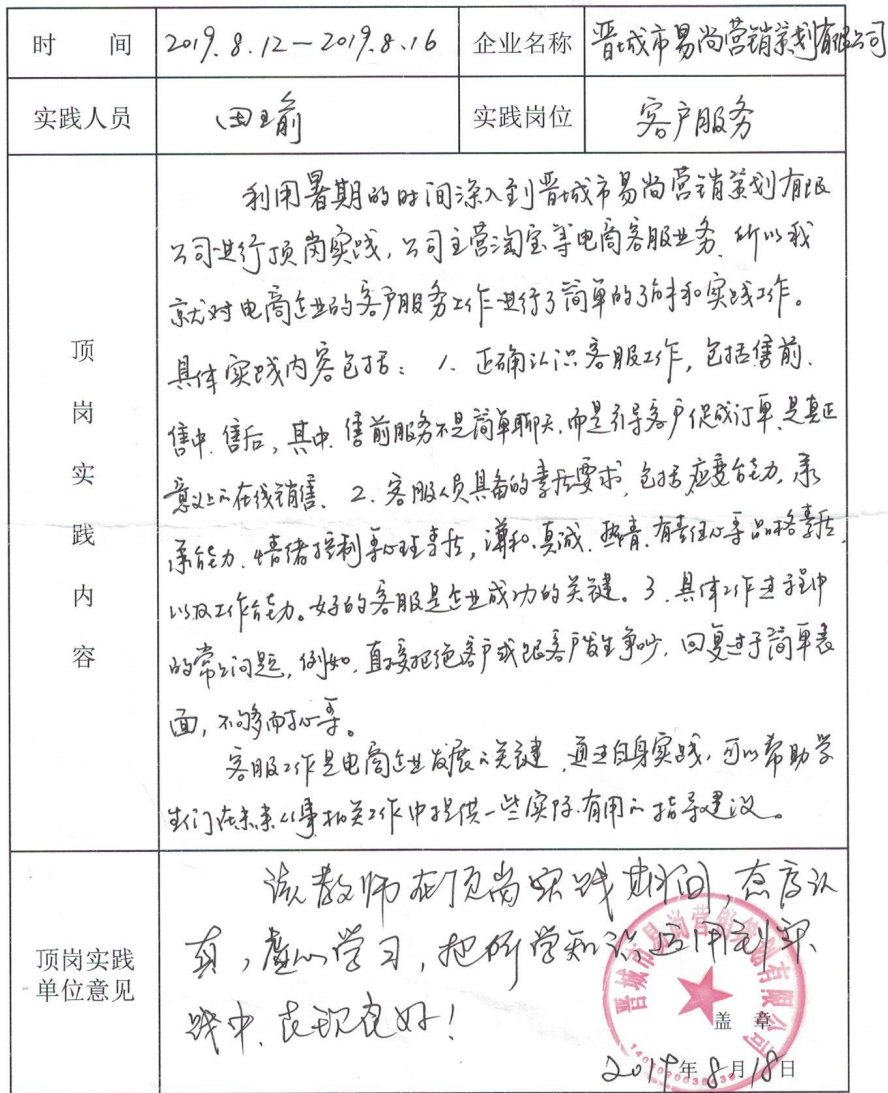 时 间 2019.8.12—2019.8.16 企业名称 晋城市易尚营销策划有限公司
实践人员 田瑜 实践岗位 客户服务
顶岗实践内容
利用暑期的时间深入到晋城市易尚营销策划有限
公司进行顶岗实践,公司主营淘宝等电商客服业务,所以我
就对电商企业的客户服务工作进行了简单的了解和实践工作。
具体实践内容包括:1. 正确认识客服工作,包括售前、
售中、售后,其中,售前服务不是简单聊天,而是引导客户促成订单,是真正
意义上的在线销售、2. 客服人员具备的素质要求,包括应变能力,承
承能力、情绪控制等心理素质,谦和、真诚、热情、有责任心等品格素质,
以及工作能力。好的客服是企业成功的关键。3. 具体工作过程中
的常见问题,例如,直接拒绝客户或跟客户发生争吵,回复过于简单表
面,不够而耐心等。
客服工作是电商企业发展的关键,通过自身实践,可以帮助学
生们在未来从事相关工作中提供一些实际有用的指导建议。
顶岗实践
单位意见
该教师在顶岗实践期间,态度认
真,虚心学习,把所学知识运用到实
践中,表现良好!
晋城市易尚营销策划有限公司
盖 章
2019年8月18日